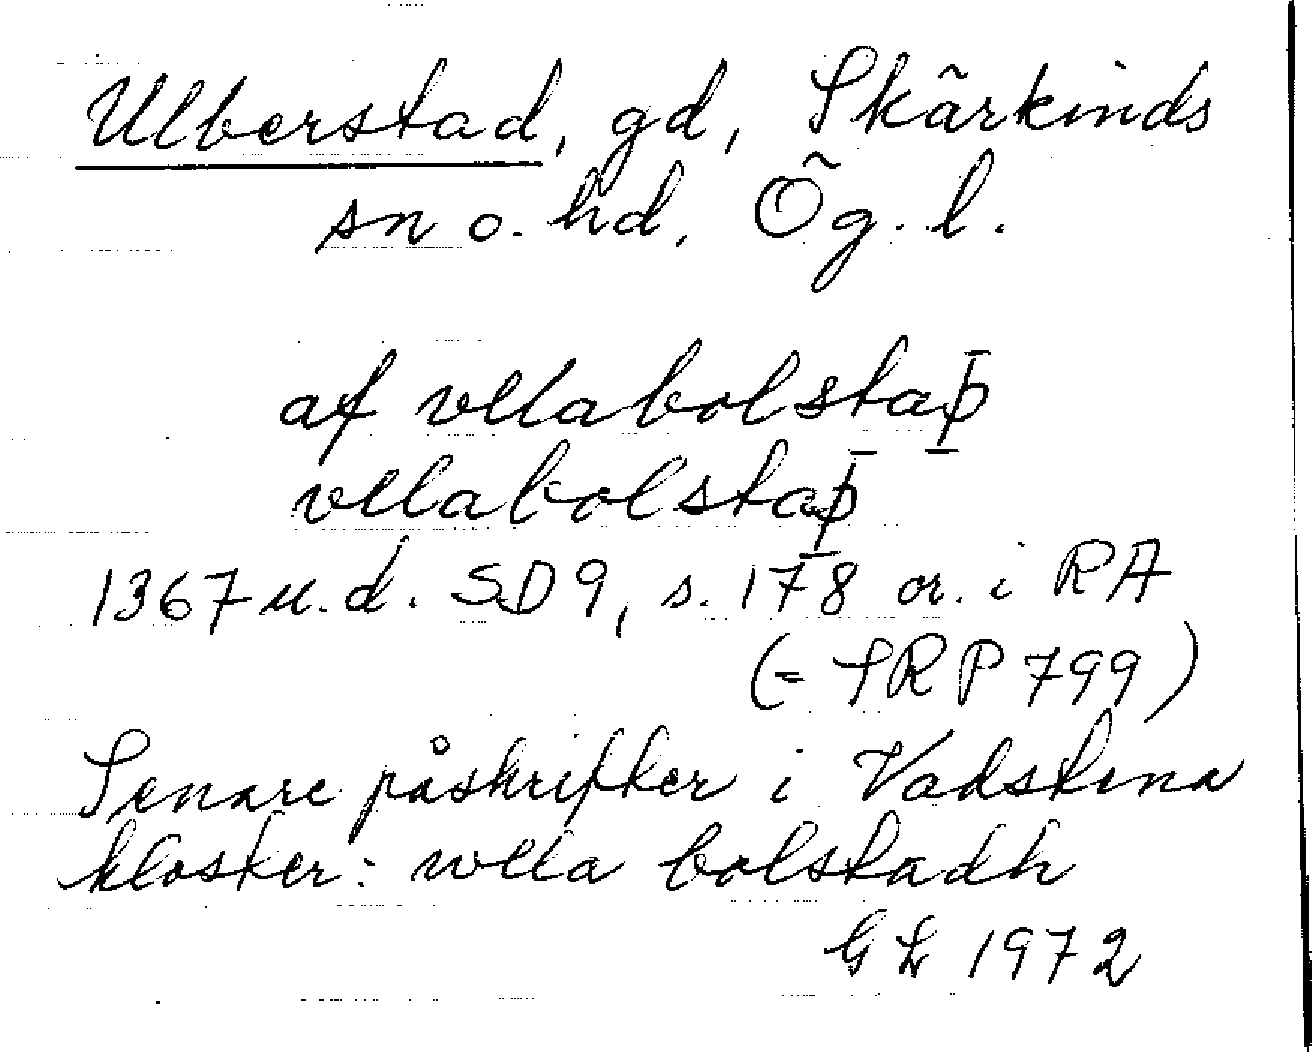 Ulberstad, gd, Skärkinds
sn o. hd, Ög. l.
af vllabolstaþ
vllabolstaþ
1367 u.d. SD 9, s. 178 or. i RA
(= SRP 799)
Senare påskrifter i Vadstena
kloster: wlla bolstadh
GL 1972